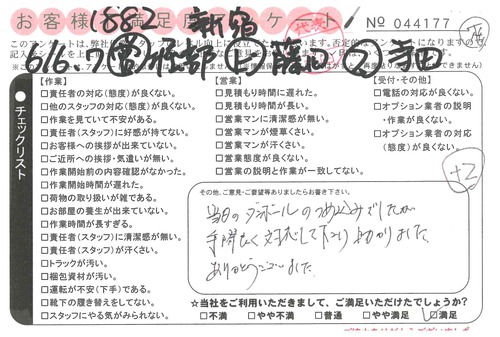 お客様満足度アンケート
1882 新宿
No 044177
代表
チェックリスト
【作業】
□責任者の対応(態度)が良くない。
□他のスタッフの対応(態度)が良くない。
□作業を見ていて不安がある。
□責任者(スタッフ)に好感が持てない。
□お客様への挨拶が出来ていない。
□ご近所への挨拶・気遣いが無い。
□作業開始前の内容確認がなかった。
□作業開始時間が遅れた。
□荷物の取り扱いが雑である。
□お部屋の養生が出来ていない。
□作業時間が長すぎる。
□責任者(スタッフ)に清潔感が無い。
□責任者(スタッフ)が汗くさい。
□トラックが汚い。
□梱包資材が汚い。
□運転が不安(下手)である。
□靴下の履き替えをしてない。
□スタッフにやる気がみられない。
【営業】
□見積もり時間に遅れた。
□見積もり時間が長い。
□営業マンに清潔感が無い。
□営業マンが煙草くさい。
□営業マンが汗くさい。
□営業態度が良くない。
□営業の説明と作業が一致してない。
【受付・その他】
□電話の対応が良くない。
□オプション業者の説明
・作業が良くない。
□オプション業者の対応
(態度)が良くない。
+2
その他、ご意見・ご要望等ありましたらお書き下さい。
当日のダンボールのつめ込みでしたが
手際良く対応して下さり助かりました。
ありがとうございました。
☆当社をご利用いただきまして、ご満足いただけたでしょうか?
□不満 □やや不満 □普通 □やや満足 □満足